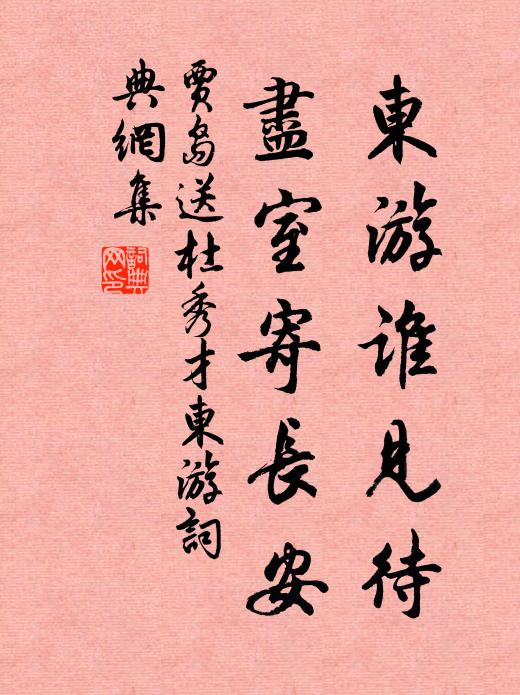 東游誰見待
盡室寄長安
賈島送杜秀才東游詞
典網集
詞典
网印